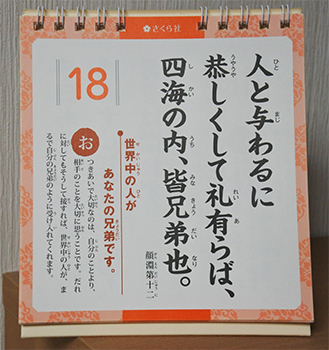 さくら社
18
人と与わるに
恭しくして礼有らば、
四海の内、皆兄弟也。
顔淵第十二
世界中の人が
あなたの兄弟です。
お
つきあいで大切なのは、自分のことより、
相手のことを大切に思うことです。だれ
に対してもそうして接すれば、世界中の人が、ま
るで自分の兄弟のように受け入れてくれます。